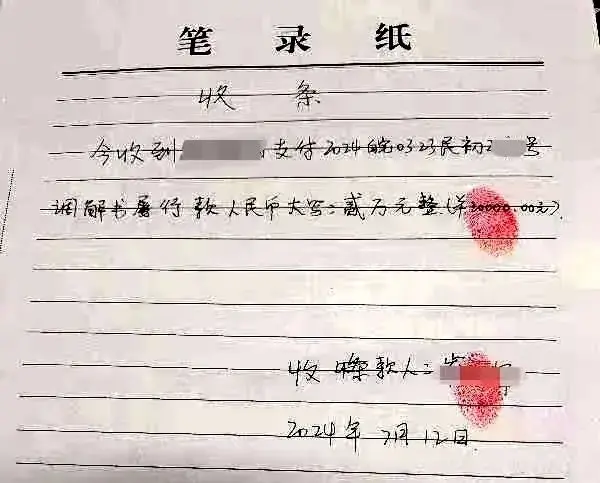 笔录纸
收条
今收到 支付2024皖0323民初2 号
调解书履行款人民币大写:贰万元整(¥20000.00元).
收 款人:
2024年7月12日